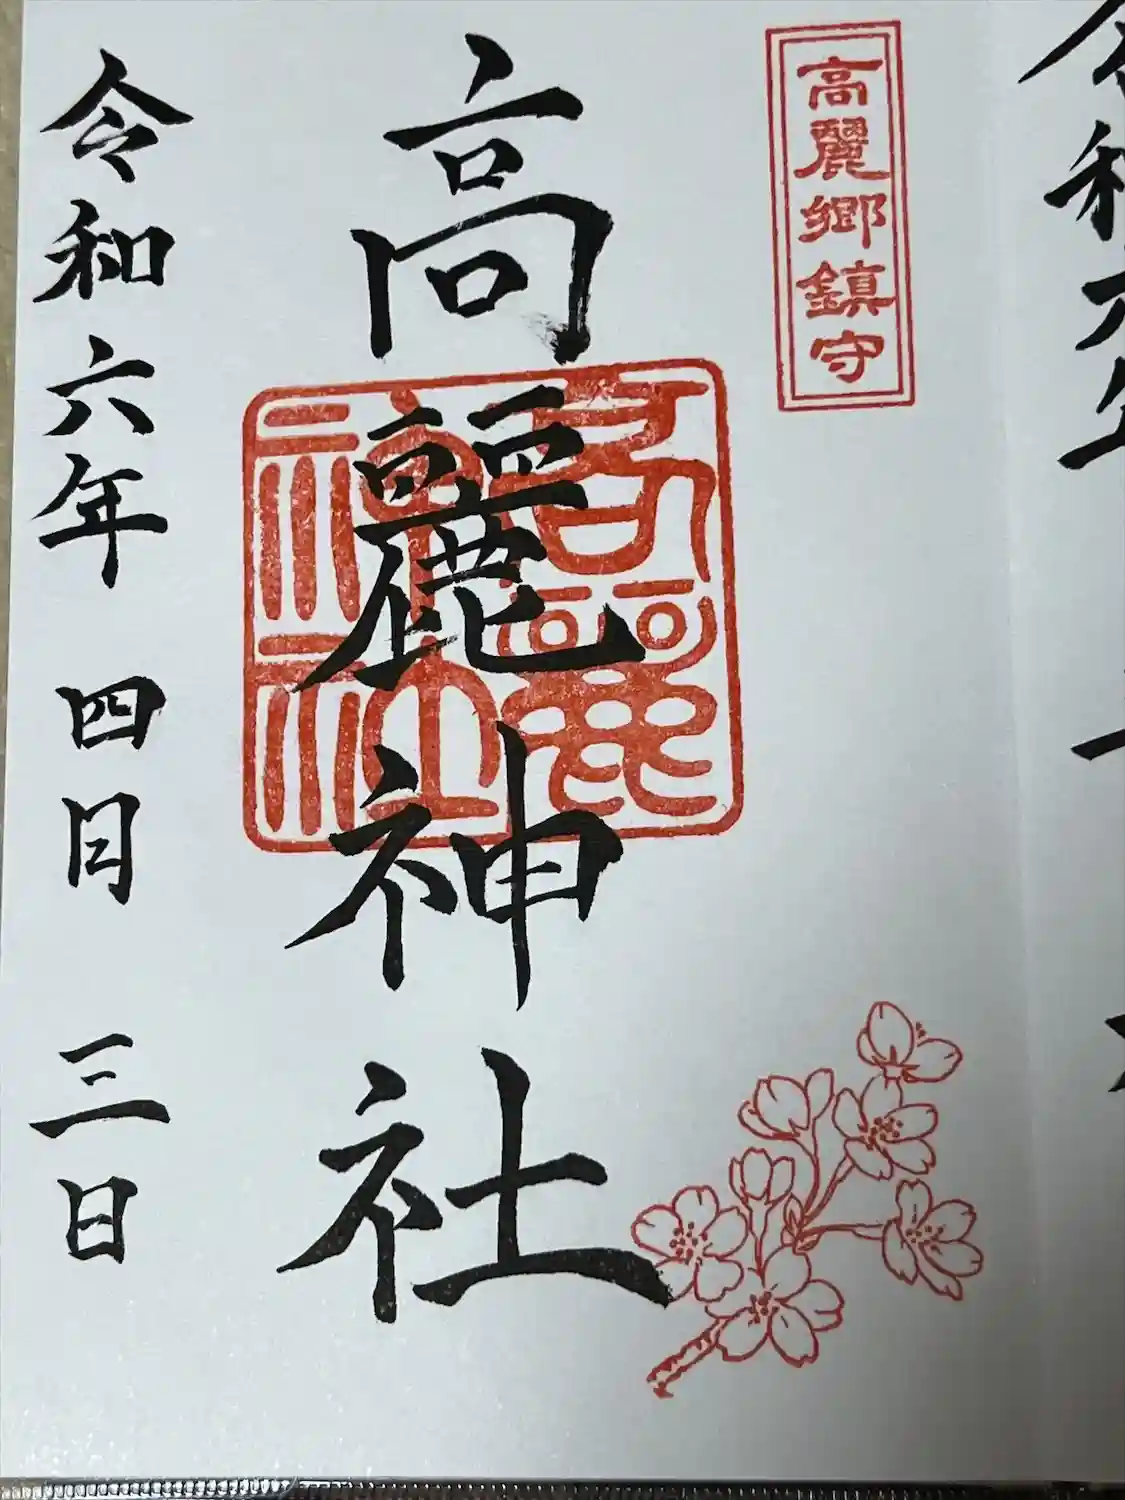 高麗郷鎮守
高麗神社
高麗神社
令和六年四月三日